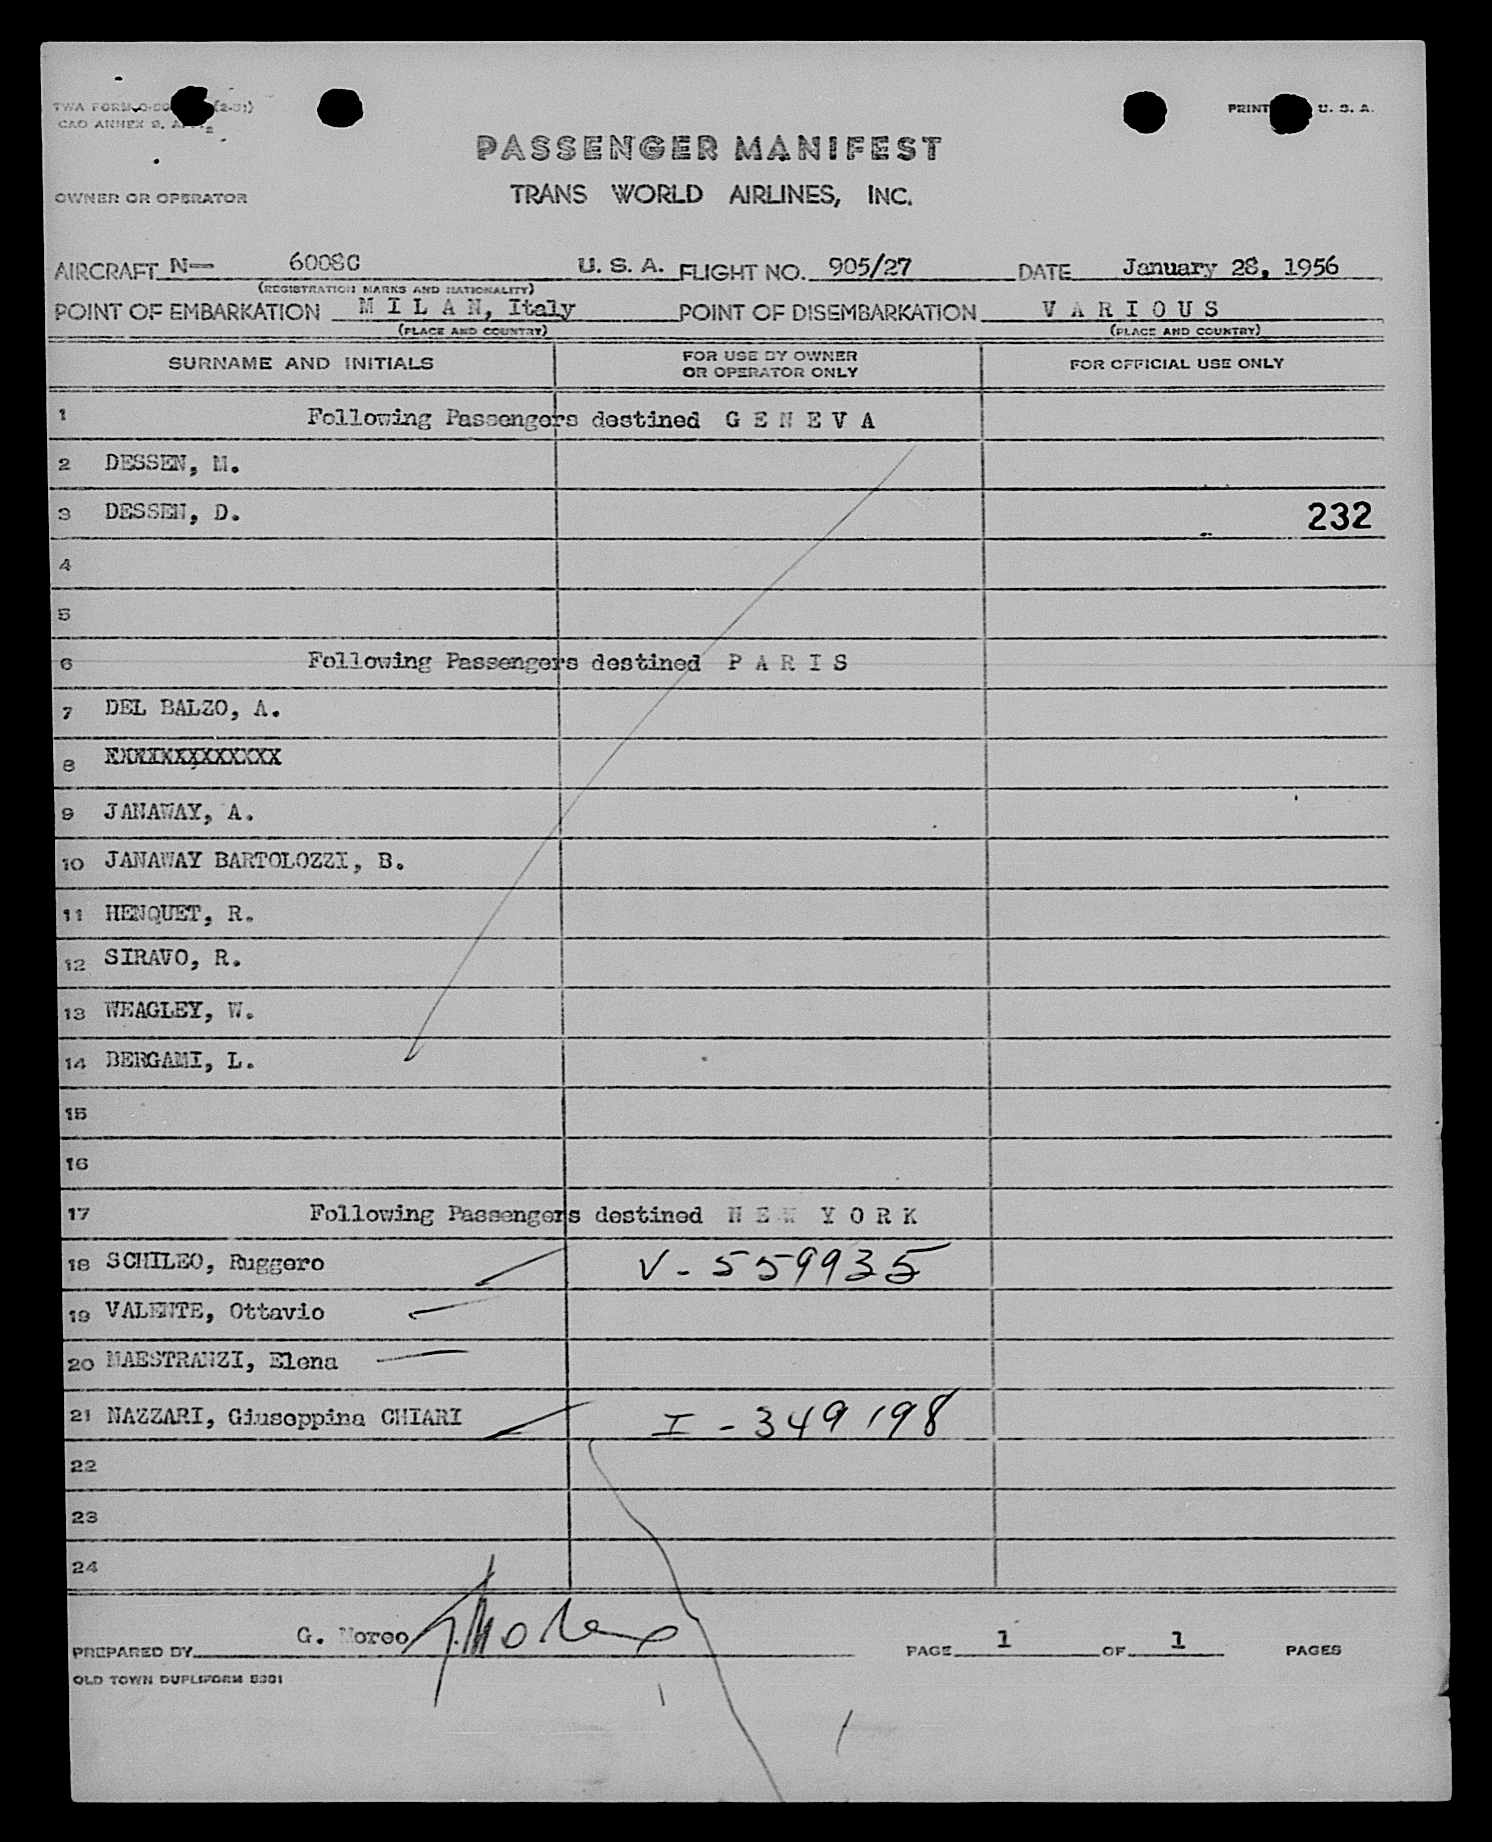 TWA FORM (2-51)
CAO ANNEX 9, 2
PRINT U. S. A.
PASSENGER MANIFEST
TRANS WORLD AIRLINES, INC.
OWNER OR OPERATOR
AIRCRAFT N— 6008C U. S. A. FLIGHT NO. 905/27 DATE January 28, 1956
(REGISTRATION MARKS AND NATIONALITY)
POINT OF EMBARKATION M I L A N, Italy POINT OF DISEMBARKATION V A R I O U S
(PLACE AND COUNTRY) (PLACE AND COUNTRY)
SURNAME AND INITIALS FOR USE BY OWNER OR OPERATOR ONLY FOR OFFICIAL USE ONLY
1 Following Passengers destined G E N E V A
2 DESSEN, M.
3 DESSEN, D. 232
4
5
6 Following Passengers destined P A R I S
7 DEL BALZO, A.
8
9 JANAWAY, A.
10 JANAWAY BARTOLOZZI, B.
11 HENQUET, R.
12 SIRAVO, R.
13 WEAGLEY, W.
14 BERGAMI, L.
15
16
17 Following Passengers destined N E W Y O R K
18 SCHILEO, Ruggero V - 559935
19 VALENTE, Ottavio
20 MAESTRANZI, Elena
21 NAZZARI, Giuseppina CHIARI I - 349198
22
23
24
PREPARED BY G. Moreo PAGE 1 OF 1 PAGES
OLD TOWN DUPLIFORM 5301